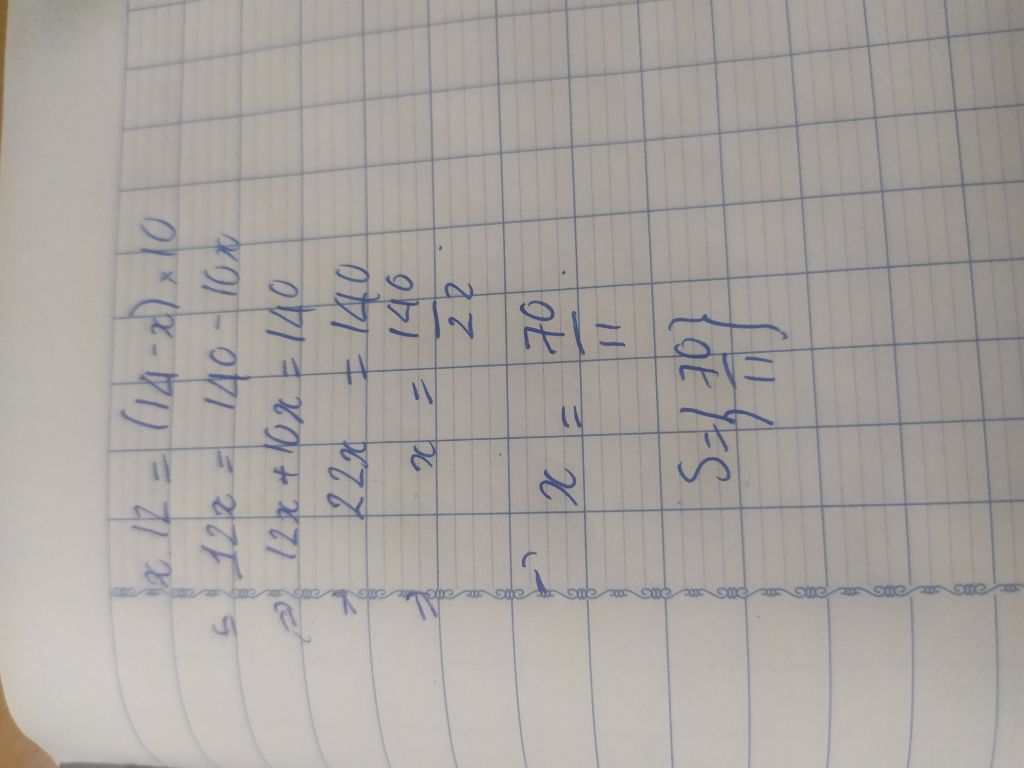 x.12 = (14 - x) × 10
12x = 140 - 10x
⇒ 12x + 10x = 140
⇒ 22x = 140
⇒ x = 140/22.
⇒ x = 70/11.
S = {70/11}